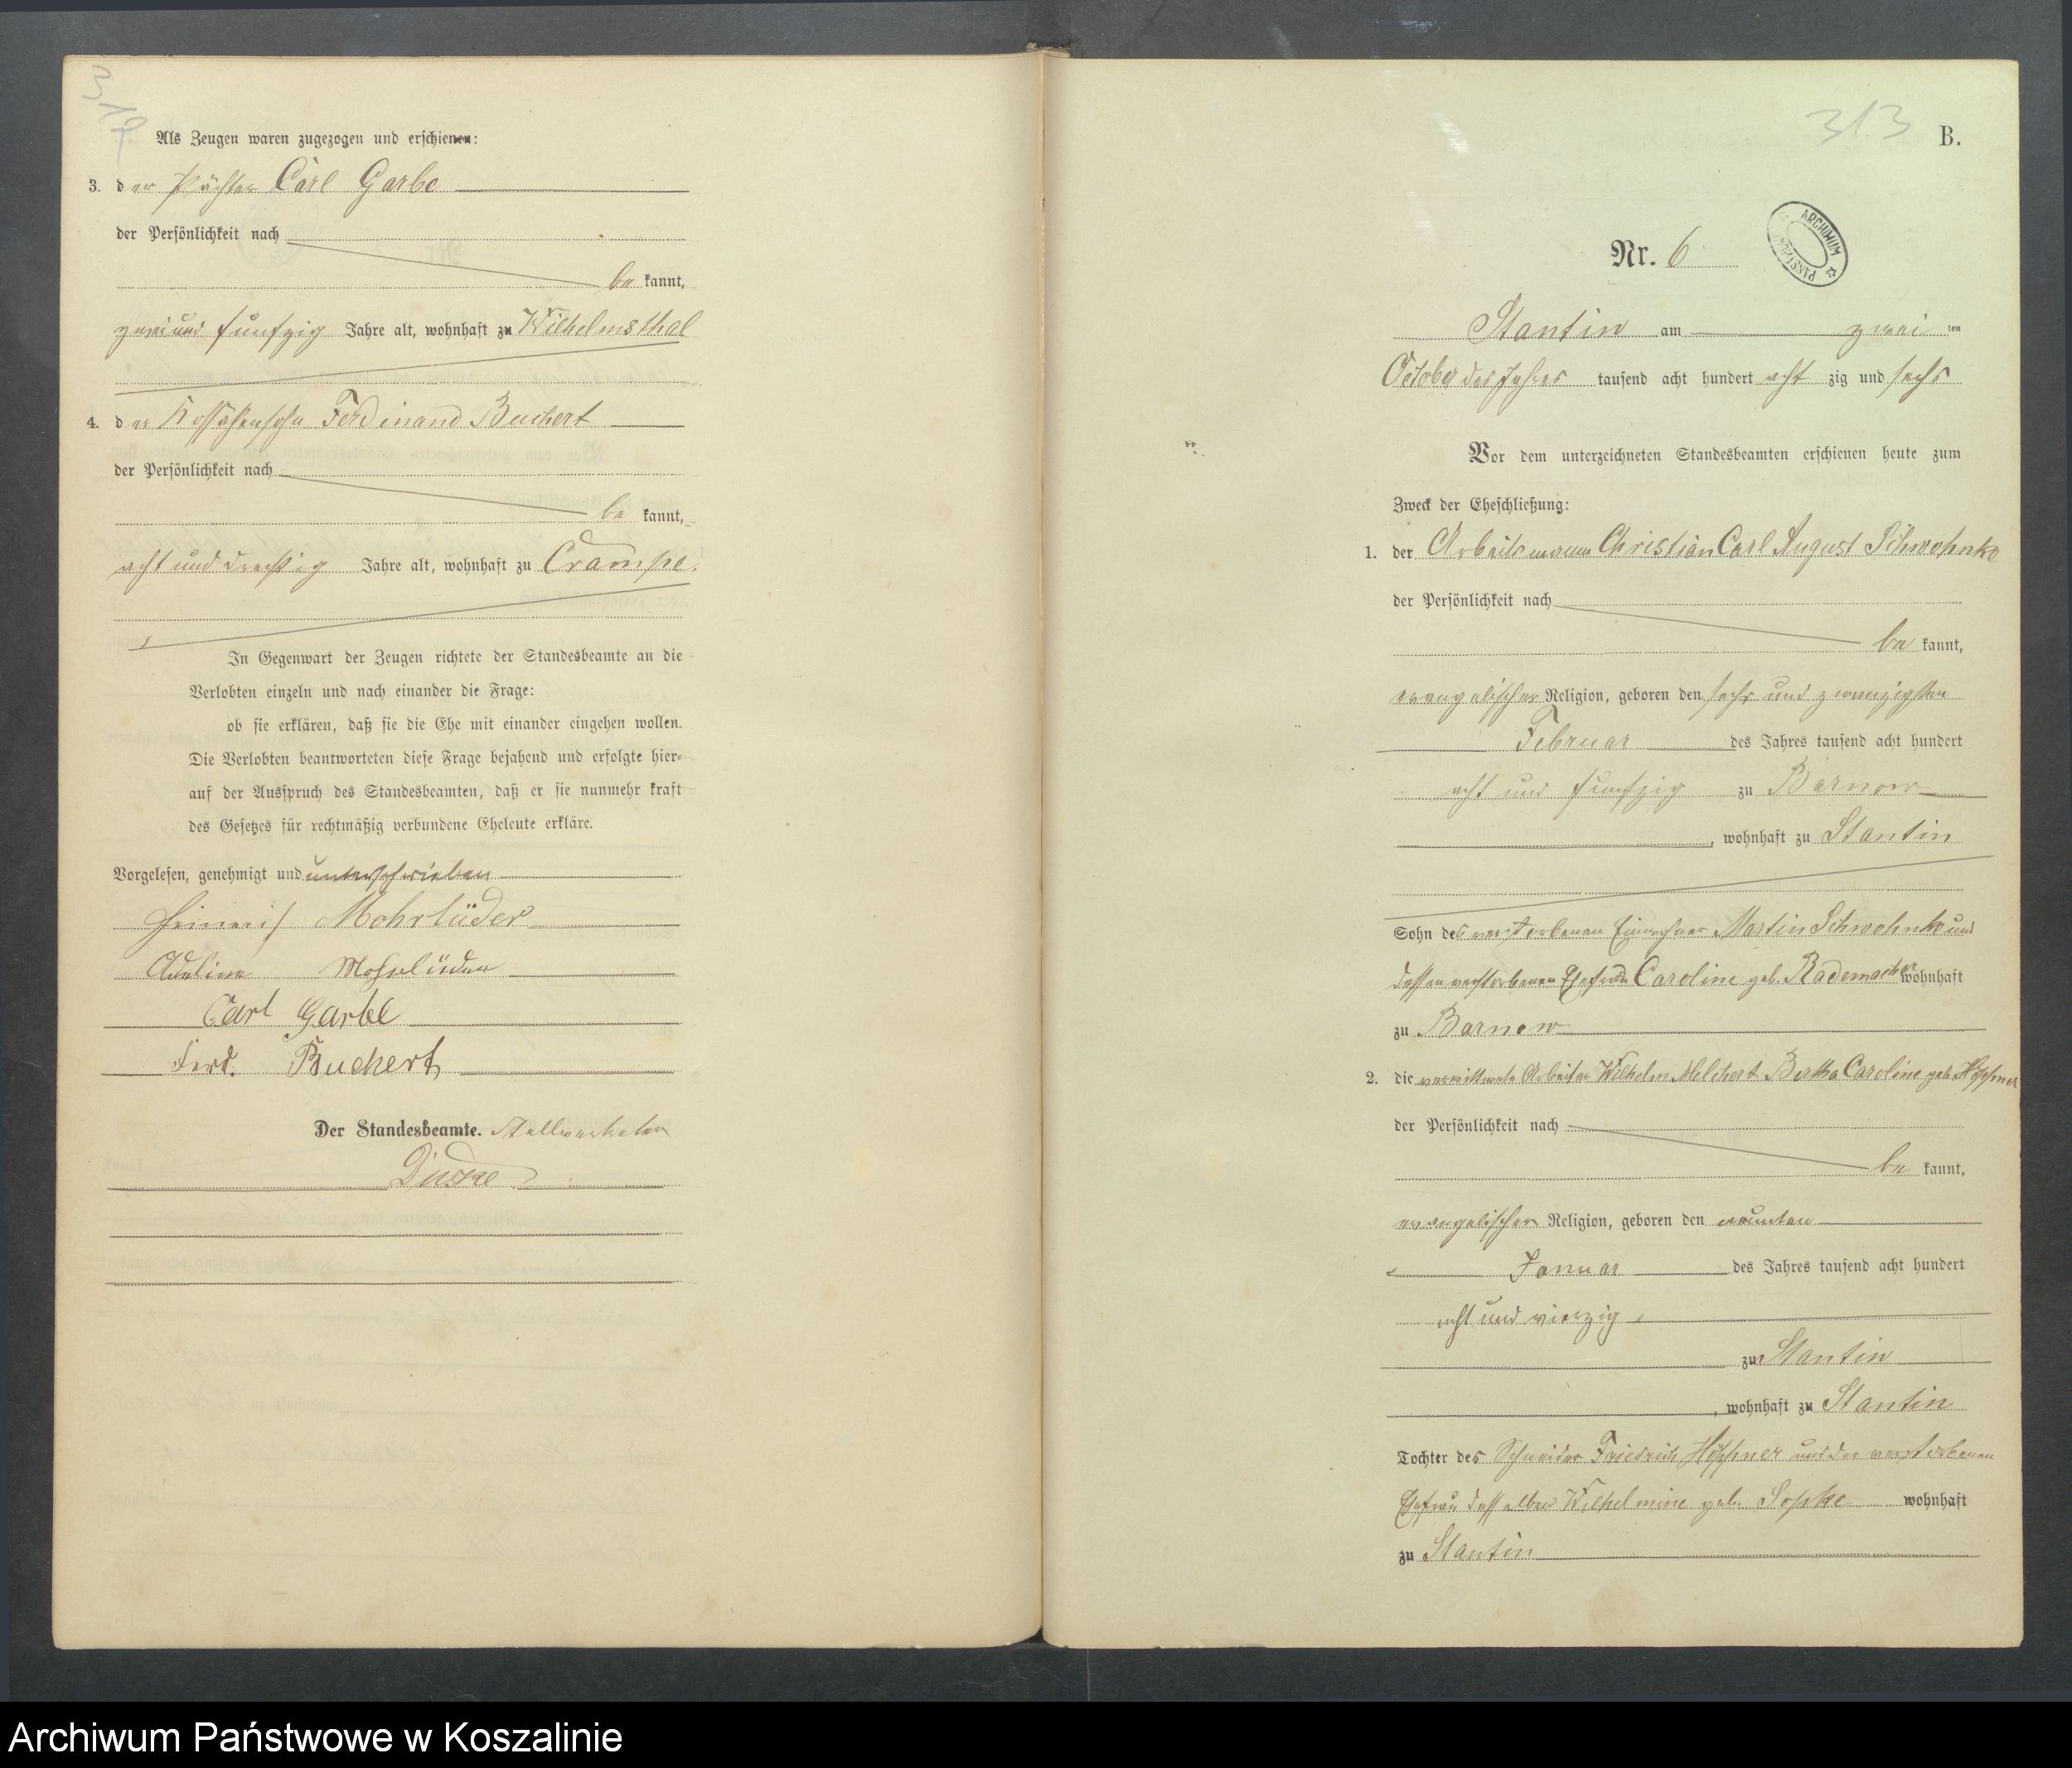 317
Als Zeugen waren zugezogen und erschienen:
3. der Pächter Carl Garbe
der Persönlichkeit nach
be kannt,
zweiund funfzig Jahre alt, wohnhaft zu Wilhelmsthal
4. der Kossäthensohn Ferdinand Buchert
der Persönlichkeit nach
be kannt,
acht und dreißig Jahre alt, wohnhaft zu Crampe.
In Gegenwart der Zeugen richtete der Standesbeamte an die
Verlobten einzeln und nach einander die Frage:
ob sie erklären, daß sie die Ehe mit einander eingehen wollen.
Die Verlobten beantworteten diese Frage bejahend und erfolgte hier-
auf der Ausspruch des Standesbeamten, daß er sie nunmehr kraft
des Gesetzes für rechtmäßig verbundene Eheleute erkläre.
Vorgelesen, genehmigt und unterschrieben
Heinrich Mohrlüder
Adeline Mohrlüder
Carl Garbe
Ferd. Buchert
Der Standesbeamte. Stellvertreter
313
B.
Nr. 6
ARCHIWUM
Stantin am zwei ten
October des Jahres tausend acht hundert acht zig und sechs
Vor dem unterzeichneten Standesbeamten erschienen heute zum
Zweck der Eheschließung:
1. der Arbeitsmann Christian Carl August Schwohnke
der Persönlichkeit nach
be kannt,
evangelischer Religion, geboren den sechs und zwanzigsten
Februar des Jahres tausend acht hundert
acht und funfzig zu Barnow
, wohnhaft zu Stantin
Sohn des verstorbenen Einwohner Martin Schwohnke und
dessen verstorbenen Ehefrau Caroline geb. Rademacher wohnhaft
zu Barnow
2. die verwittwete Arbeiter Wilhelm Melchert Bertha Caroline geb. Höppner
der Persönlichkeit nach
be kannt,
evangelischer Religion, geboren den neunten
Januar des Jahres tausend acht hundert
acht und vierzig
zu Stantin
, wohnhaft zu Stantin
Tochter des Schneider Friedrich Höppner und der verstorbenen
Ehefrau desselben Wilhelmine geb. Sopke wohnhaft
zu Stantin
Archiwum Państwowe w Koszalinie